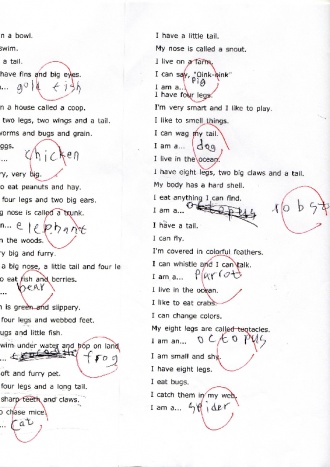 n a bowl.
swim.
a tail.
have fins and big eyes.
... gold fish
n a house called a coop.
two legs, two wings and a tail.
worms and bugs and grain.
ggs.
... chicken
ry, very big.
to eat peanuts and hay.
four legs and two big ears.
g nose is called a trunk.
... elephant
n the woods.
ry big and furry.
a big nose, a little tail and four le
o eat fish and berries.
... bear
n is green and slippery.
four legs and webbed feet.
ugs and little fish.
swim under water and hop on land
... frog
oft and furry pet.
four legs and a long tail.
sharp teeth and claws.
o chase mice.
... cat
I have a little tail.
My nose is called a snout.
I live on a farm.
I can say, "Oink-oink"
I am a... pig
I have four legs.
I'm very smart and I like to play.
I like to smell things.
I can wag my tail.
I am a... dog
I live in the ocean.
I have eight legs, two big claws and a tail.
My body has a hard shell.
I eat anything I can find.
I am a... octopus
I have a tail.
I can fly.
I'm covered in colorful feathers.
I can whistle and I can talk.
I am a... parrot
I live in the ocean.
I like to eat crabs.
I can change colors.
My eight legs are called tentacles.
I am an... octopus
I am small and shy.
I have eight legs.
I eat bugs.
I catch them in my web.
I am a... speider